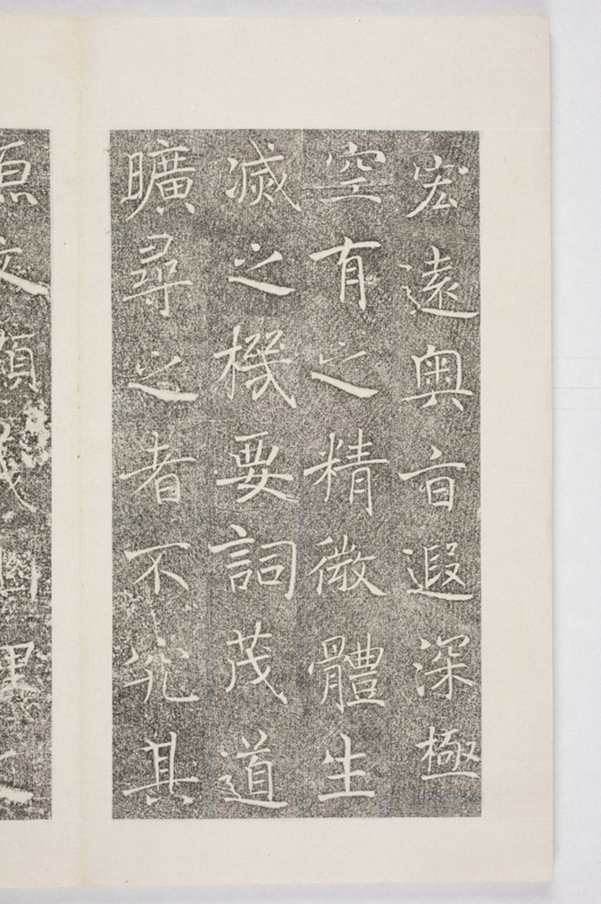 宏遠奥旨遐深極
空有之精微體生
滅之機要詞茂道
曠尋之者不究其